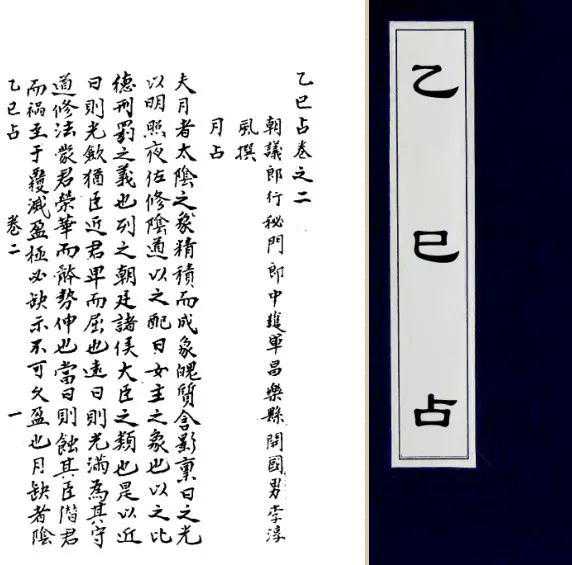 乙巳占卷之二
朝議郎行秘門郎中護軍昌樂縣開國男李淳
風撰
月占
夫月者太陰之象精積而成象魄質含影稟日之光
以明照夜佐修陰道以之配日女主之象也以之比
德刑罰之義也列之朝廷諸侯大臣之類也是以近
日則光斂猶臣近君卑而屈也遠日則光滿為其守
道修法蒙君榮華而體勢伸也當日則蝕其臣僭君
而禍至于覆滅盈極必缺示不可久盈也月缺者陰
乙巳占 卷二 一
乙巳占